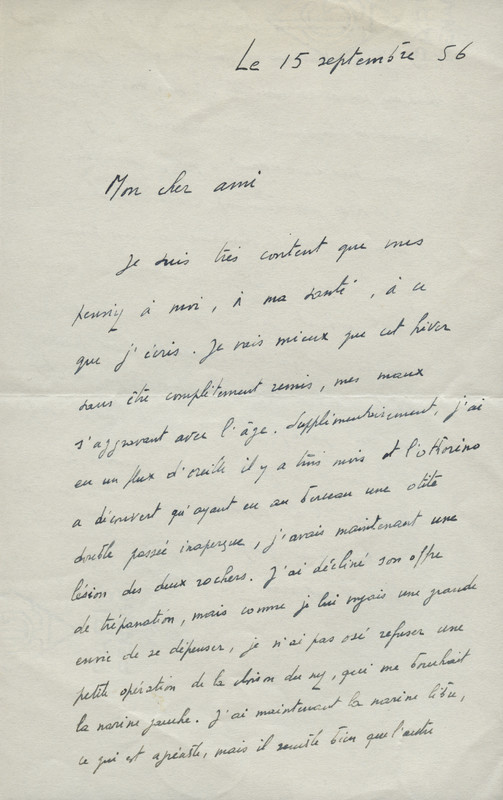 Le 15 septembre 56
Mon cher ami
Je suis très content que vous
pensiez à moi, à ma santé, à ce
que j'écris. Je vais mieux que cet hiver
sans être complètement remis, mes maux
s'aggravant avec l'âge. Supplémentairement, j'ai
eu un flux d'oreille il y a trois mois et l'otthorino
a découvert qu'ayant eu au berceau une otite
double passée inaperçue, j'avais maintenant une
lésion des deux rochers. J'ai décliné son offre
de trépanation, mais comme je lui voyais une grande
envie de se dépenser, je n'ai pas osé refuser une
petite opération de la cloison du nez, qui me bouchait
la narine gauche. J'ai maintenant la narine libre,
ce qui est agréable, mais il semble bien que l'autre